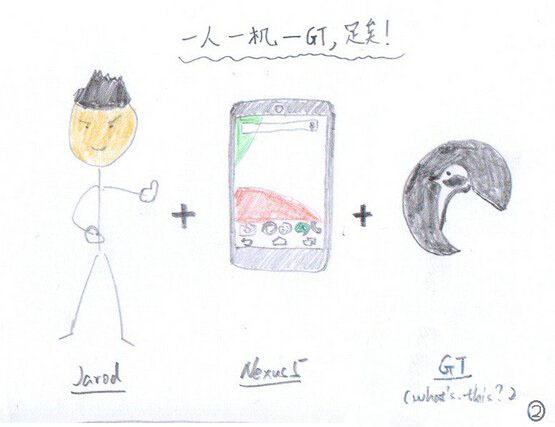 一人一机一GT,足矣!
+
+
Jarod
Nexus5
GT
(what's this?)
②